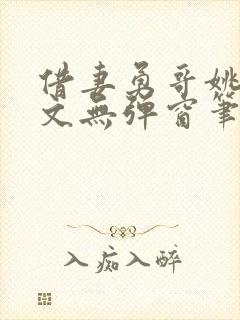 借妻勇哥姚
文無弹窗筆
入痴入醉